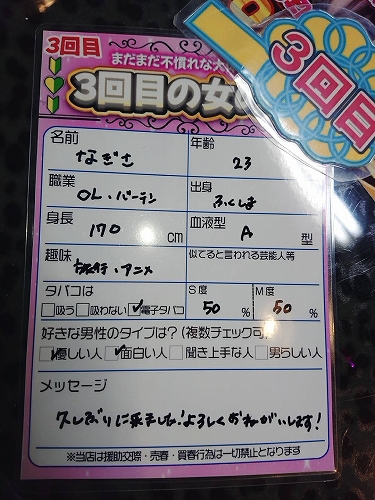 3回目
まだまだ不慣れな
3回目の女の
3回目
名前 なぎさ
年齢 23
職業 OL・バーテン
出身 ふくしま
身長 170 cm
血液型 A 型
趣味 旅行・アニメ
似てると言われる芸能人等
タバコは
□吸う □吸わない ☑電子タバコ
S度 50 %
M度 50 %
好きな男性のタイプは?(複数チェック可)
☑優しい人 ☑面白い人 □聞き上手な人 □男らしい人
メッセージ
久しぶりに来ました!よろしくおねがいします!
※当店は援助交際・売春・買春行為は一切禁止となります